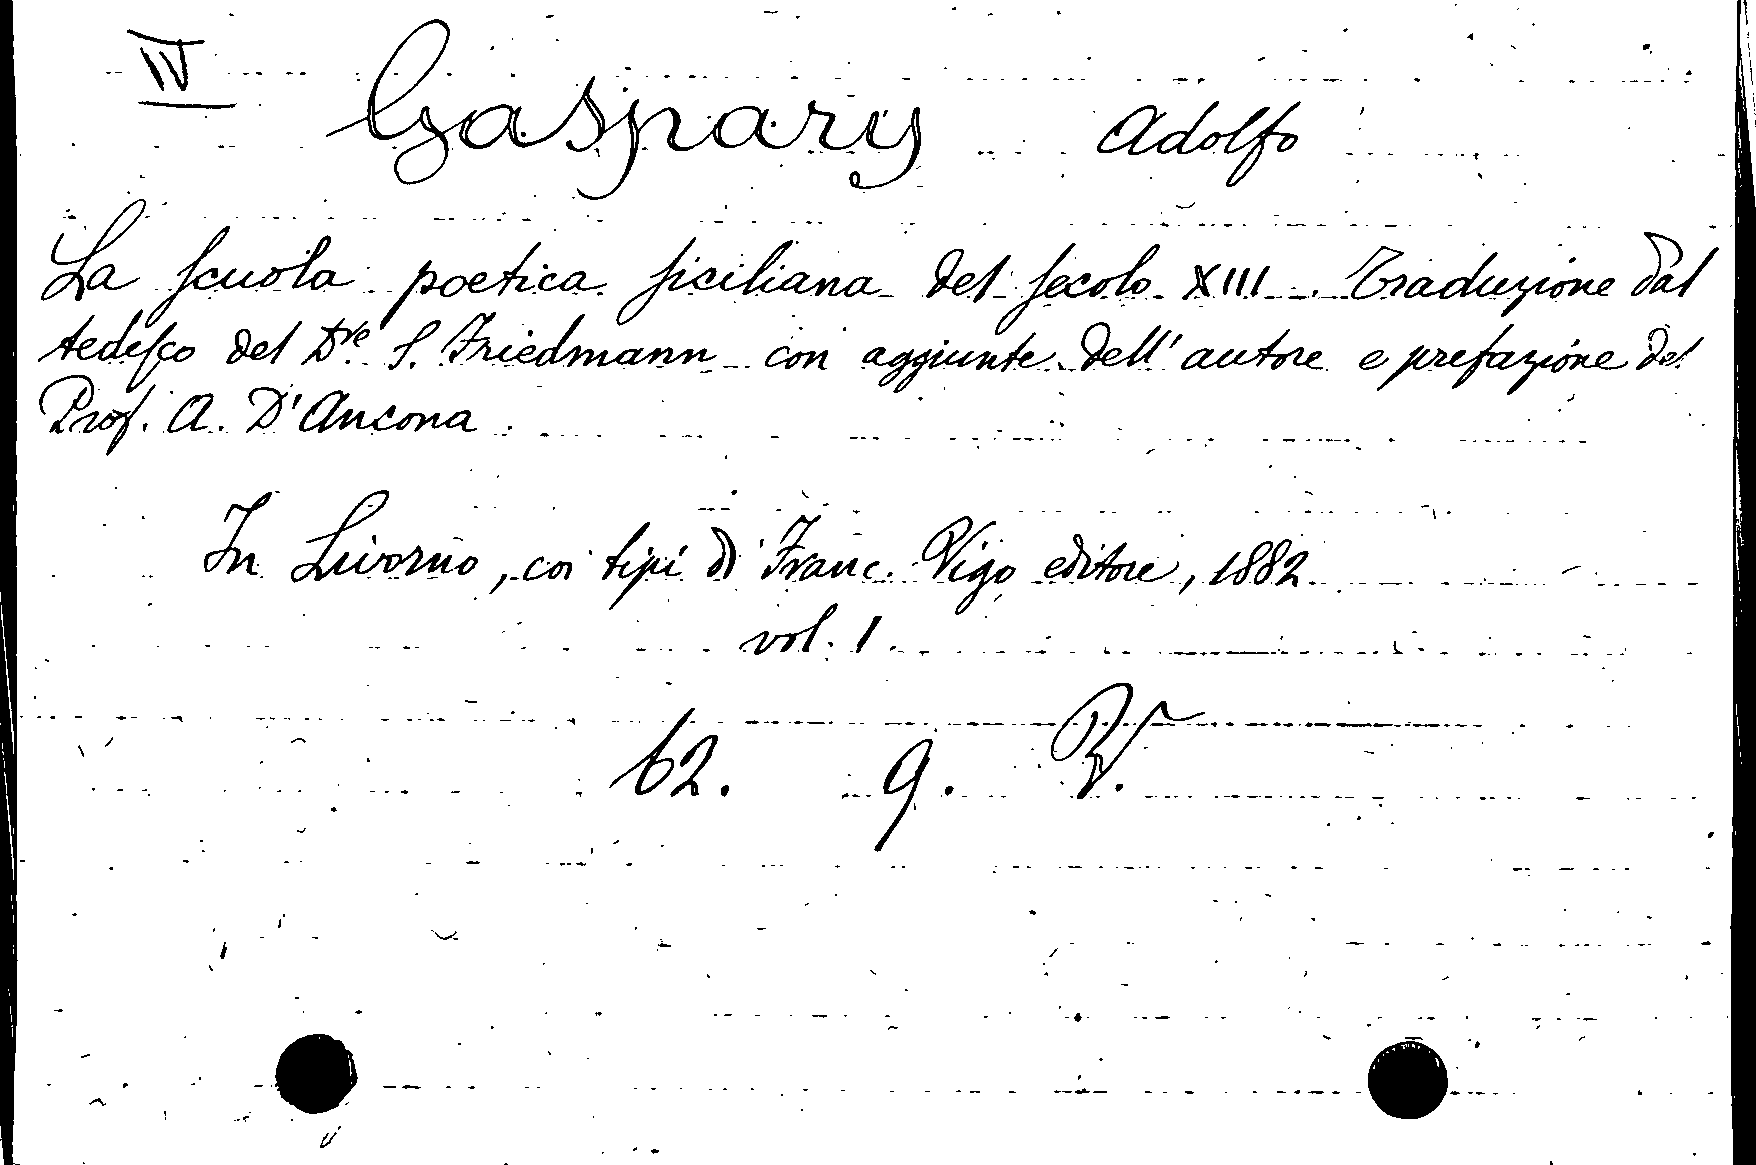 IV
Gaspary Adolfo
La scuola poetica siciliana del secolo XIII. Traduzione dal
tedesco del Dre S. Friedmann con aggiunte dell' autore e prefazione del
Prof. A. D'Ancona.
In Livorno, coi tipi di Franc. Vigo editore, 1882
vol. 1.
62. 9.